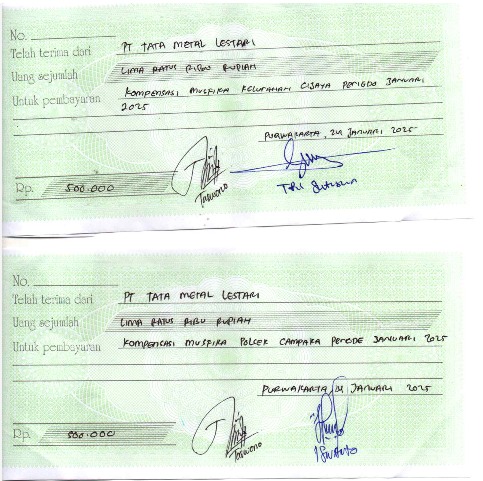 No.
Telah terima dari PT TATA METAL LESTARI
Uang sejumlah LIMA RATUS RIBU RUPIAH
Untuk pembayaran KOMPENSASI MUSPIKA KELURAHAN CIJAYA PERIODE JANUARI
2025
PURWAKARTA, 24 JANUARI 2025
Rp. 500.000
Taswono
No.
Telah terima dari PT TATA METAL LESTARI
Uang sejumlah LIMA RATUS RIBU RUPIAH
Untuk pembayaran KOMPENSASI MUSPIKA POLSEK CAMPAKA PERIODE JANUARI 2025
PURWAKARTA, 24 JANUARI 2025
Rp. 500.000
Taswono